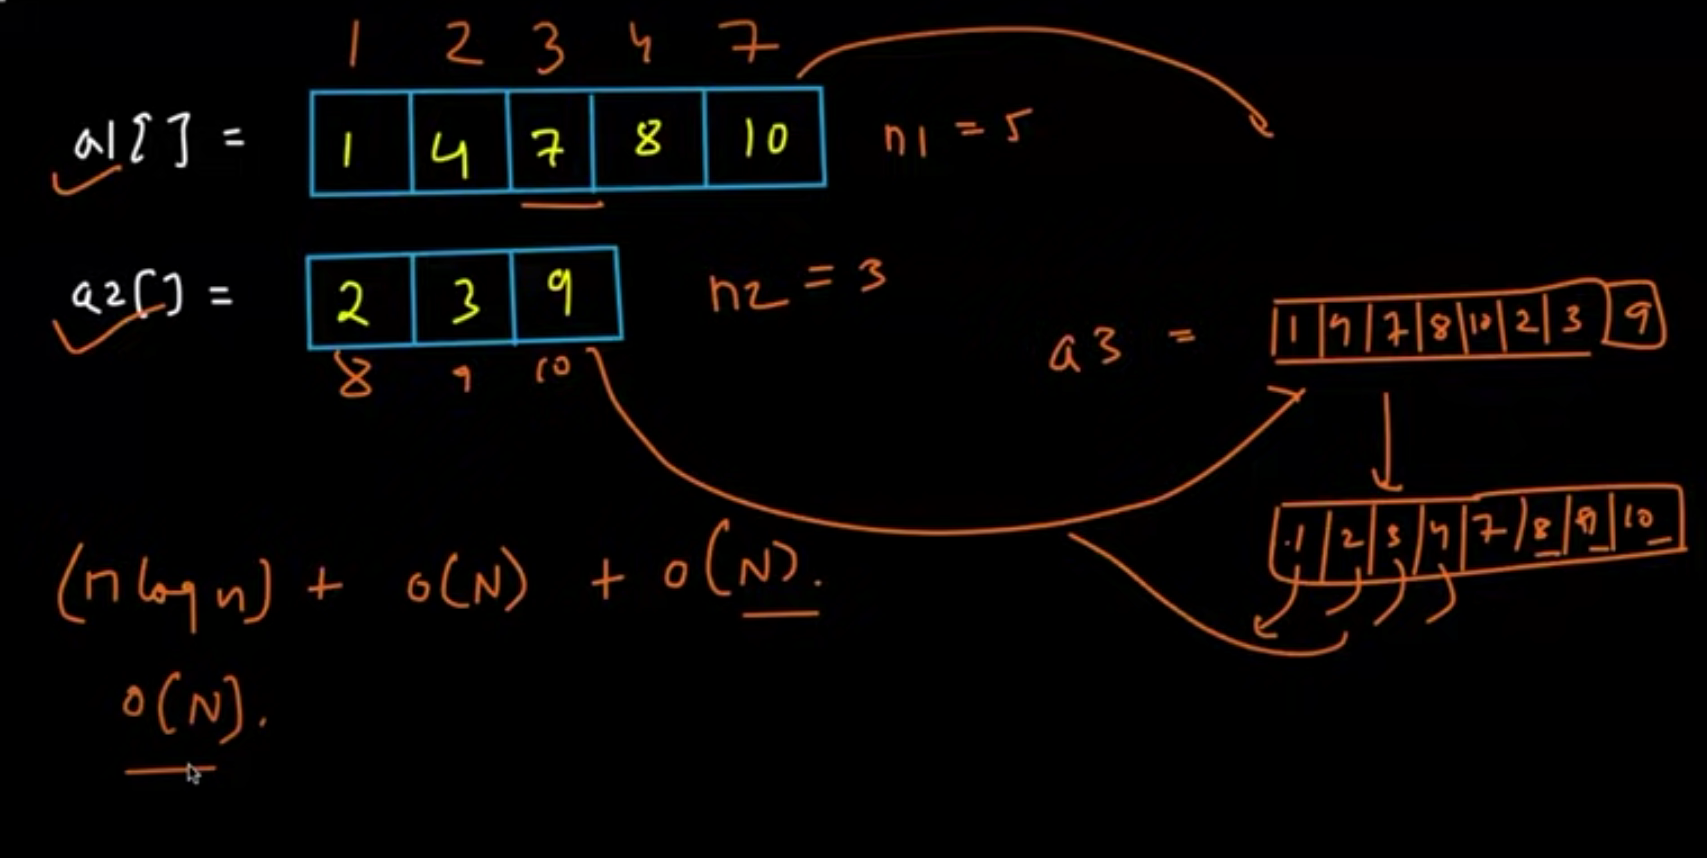 1 2 3 4 7
a1[] = 1 4 7 8 10 n1 = 5
a2[] = 2 3 9 n2 = 3
8 9 10
a3 = 1 4 7 8 10 2 3 9
1 2 3 4 7 8 9 10
(n log n) + O(N) + O(N).
O(N).